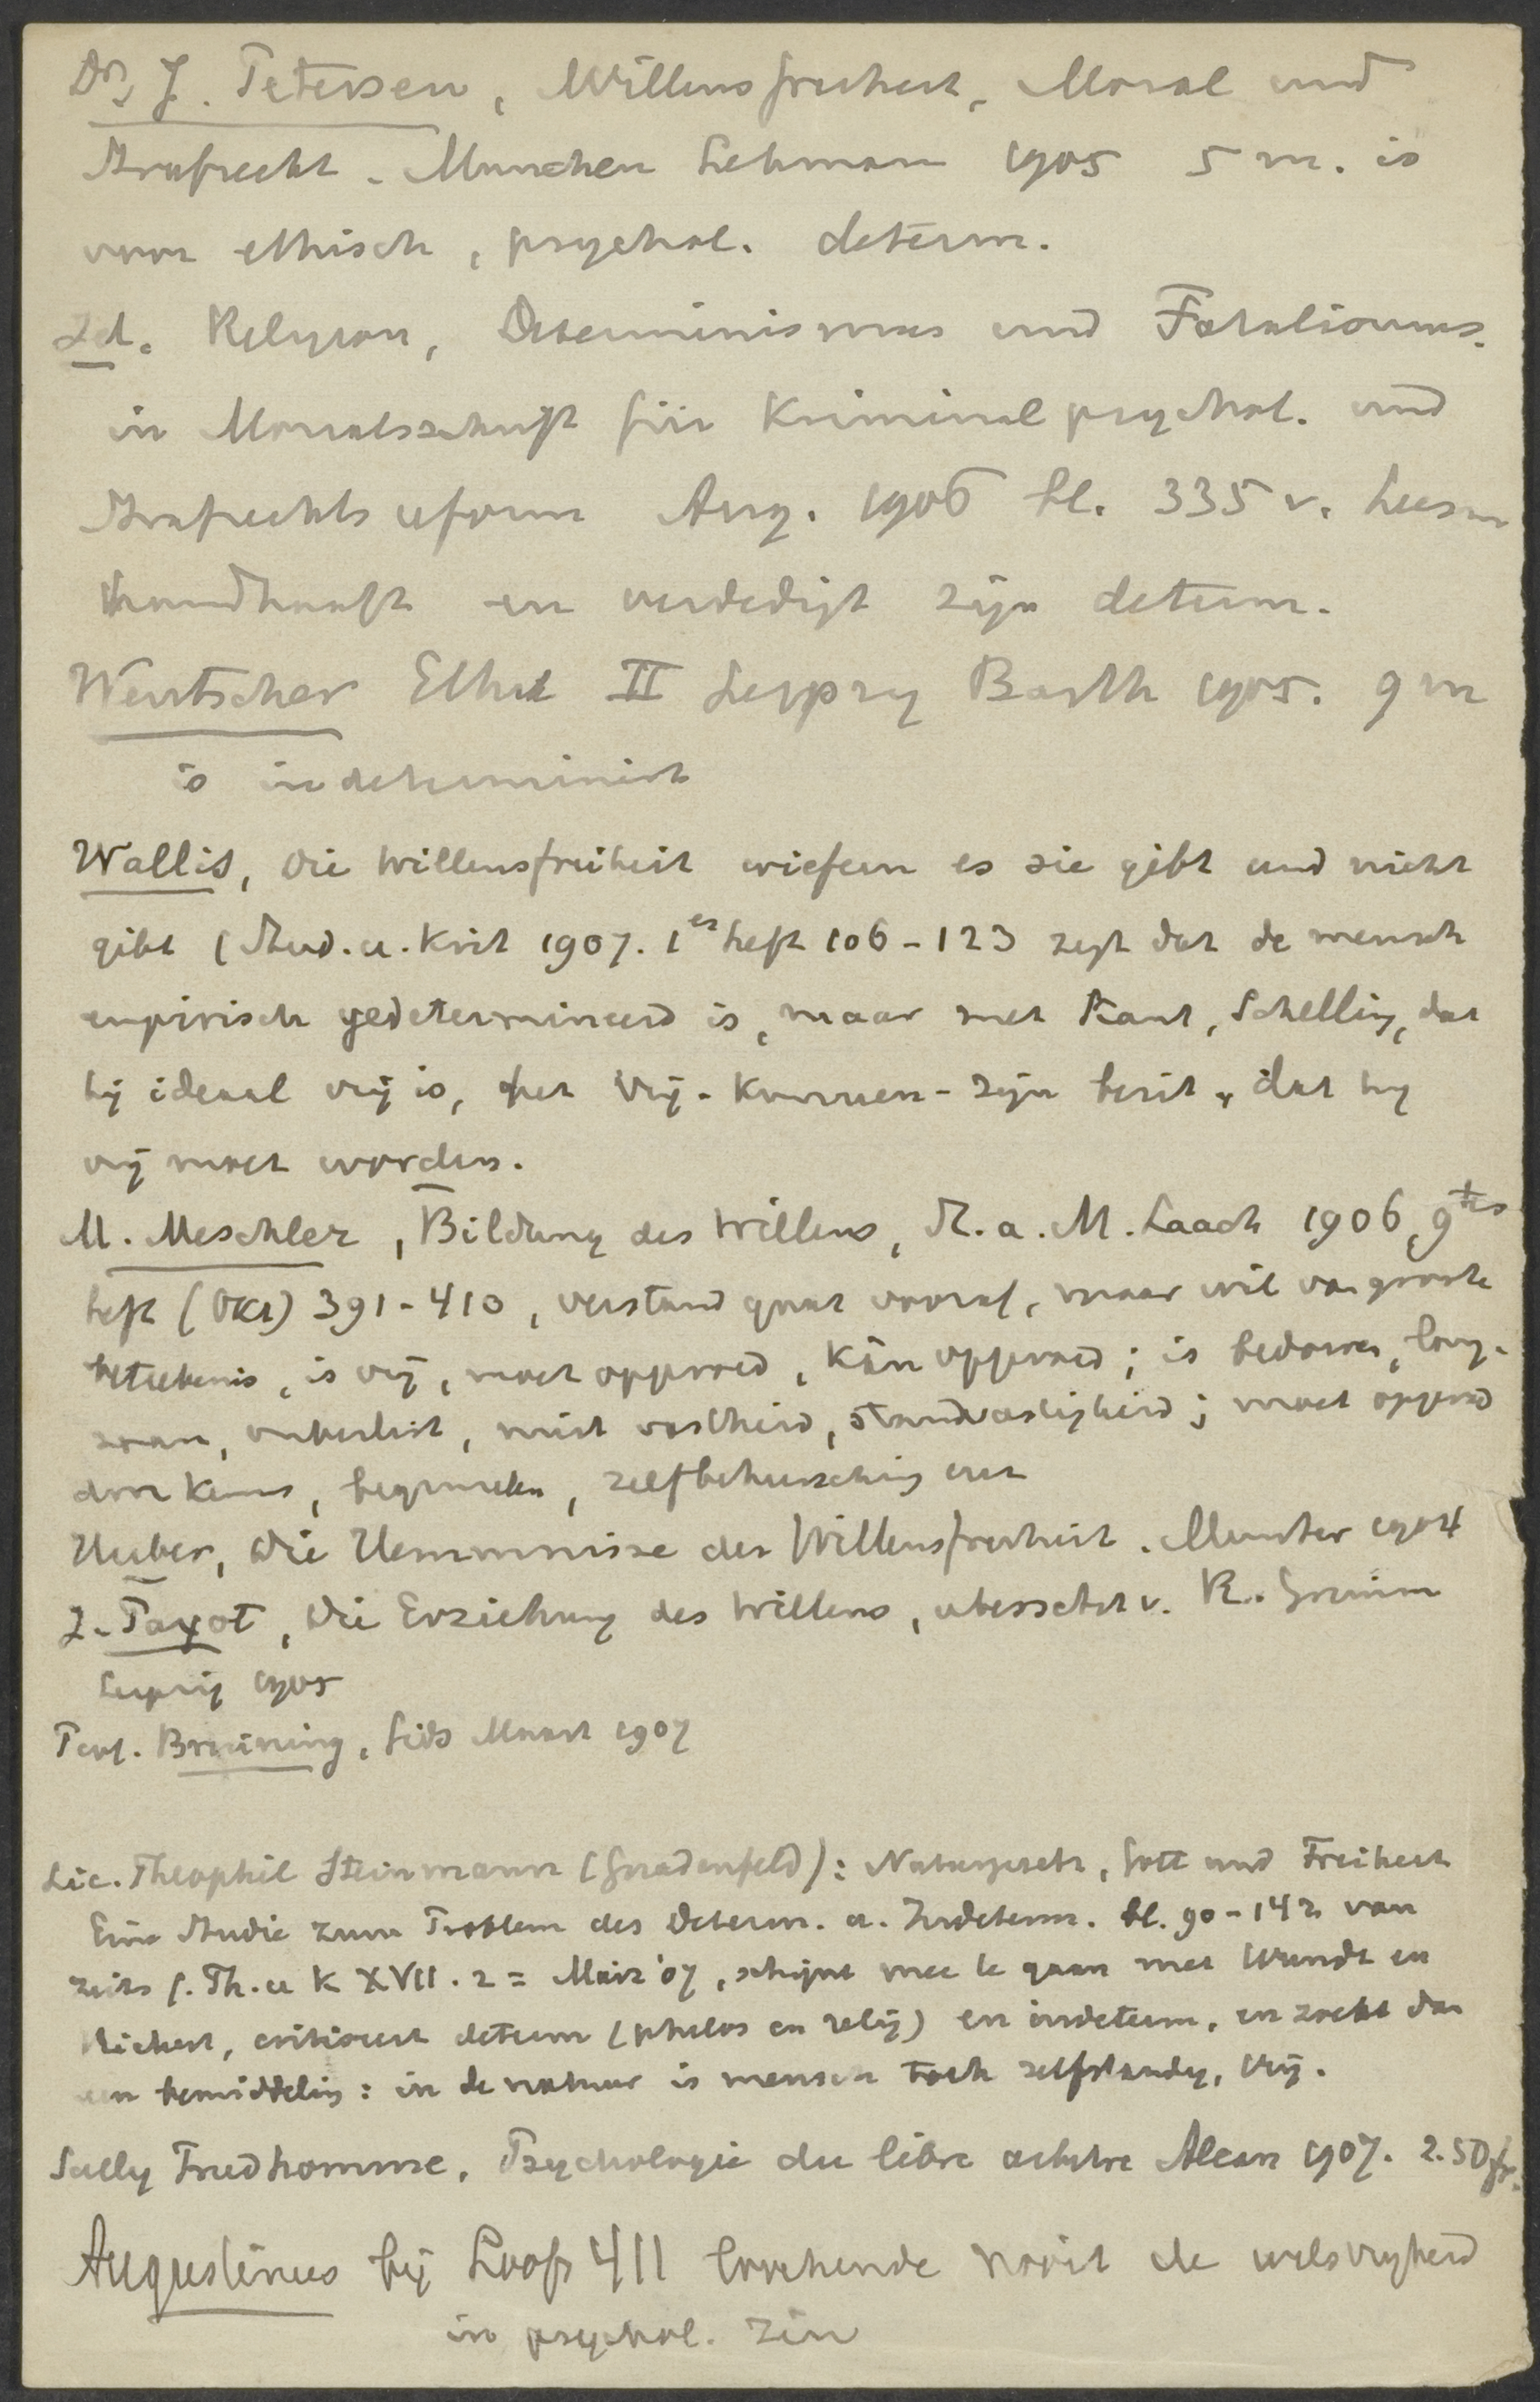 Dr. J. Petersen, Willensfreiheit, Moral und
Strafrecht. Munchen Lehman 1905 5 m. is
voor ethisch, psychol. determ.
Id. Religion, Determinismus und Fatalismus.
in Monatsschrift für Kriminalpsychol. und
Strafrechtsreform Aug. 1906 bl. 335 v.
handhaaft en verdedigt zijn determ.
Wentscher Ethik II Leipzig Barth 1905. 9 m
is indeterminist
Wallis, Die Willensfreiheit wiefern es sie gibt und nicht
gibt (Stud. u. Krit 1907. 1es heft 106-123 zegt dat de mensch
empirisch gedetermineerd is, maar met Kant, Schelling, dat
hij ideaal vrij is, het vrij-kunnen-zijn bezit, dat hij
vrij moet worden.
M. Meschler, Bildung des Willens, St. a. M. Laach 1906, 9tes
heft (Okt) 391-410, verstand gaat vooraf, maar wil van groote
beteekenis, is vrij, moet opgevoed, kán opgevoed; is bedorven, lang-
zaam, onbeslist, mist vastheid, standvastigheid; moet opgevoed
door kennis, beginselen, zelfbeheersching enz
Huber, Die Hemmnisse der Willensfreiheit. Munster 1904
J. Payot, Die Erziehung des Willens, übersetzt v. R.
Leipzig 1905
Prof. Bruining, Gids Maart 1907
Lic. Theophil Steinmann (Gnadenfeld): Naturgesetz, Gott und Freiheit
Eine Studie zum Problem des Determ. u. Indeterm. bl. 90-142 van
Zeits f. Th. u K XVII. 2 = März '07, schijnt mee te gaan met Wundt en
Rickert, critiseert determ (philos en relig) en indeterm. en zoekt dan
een bemiddeling: in de natuur is mensch toch zelfstandig, vrij.
Sully Prudhomme, Psychologie du libre arbitre Alcan 1907. 2.50 fr.
Augustinus bij Loofs 411 loochende nooit de wilsvrijheid
in psychol. zin